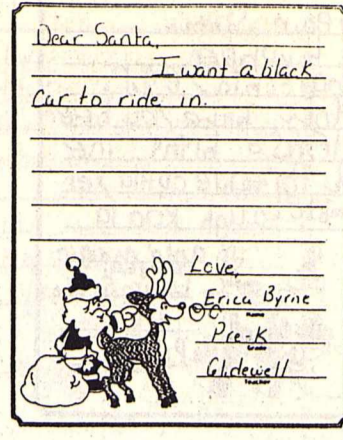 Dear Santa,
I want a black
car to ride in.
Love,
Erica Byrne
Name
Pre-K
Grade
Glidewell
Teacher